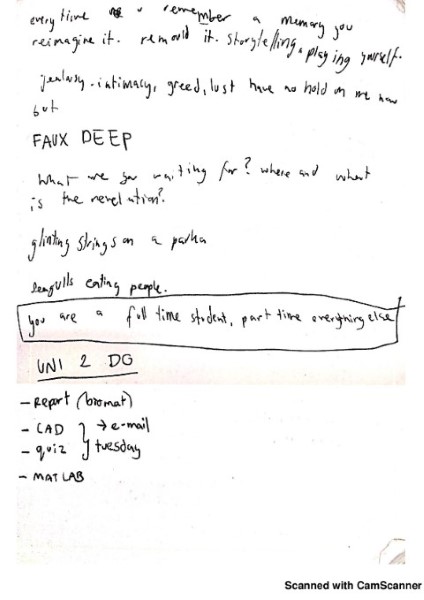 every time u remember a memory you
reimagine it. remould it. storytelling, playing yourself.
jealousy. intimacy, greed, lust have no hold on me now
but
FAUX DEEP
what are you waiting for? where and what
is the revelation?
glinting strings on a parka
seagulls eating people.
you are a full time student, part time everything else
UNI 2 DO
- Report (biomat)
- CAD } → e-mail
- quiz } tuesday
- MATLAB
Scanned with CamScanner